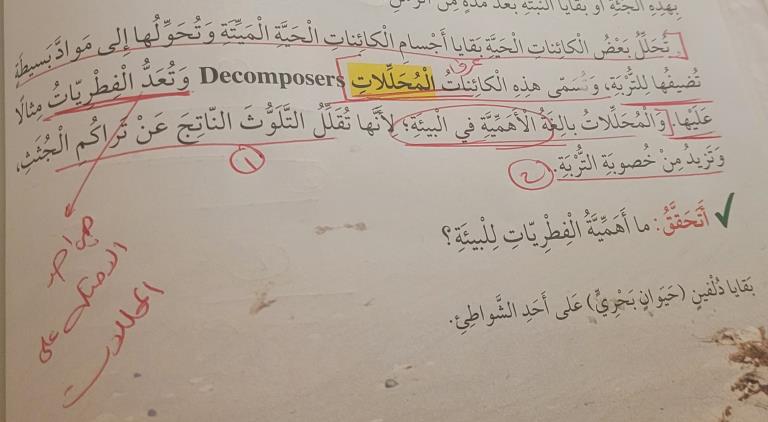 بِهٰذِهِ الْجُثَّةِ أَوْ بَقايا النَّبْتَةِ بَعْدَ مُدَّةٍ مِنَ الزَّمَنِ
تُحَلِّلُ بَعْضُ الْكائِناتِ الْحَيَّةِ بَقايا أَجْسامِ الْكائِناتِ الْحَيَّةِ الْمَيِّتَةِ وَتُحَوِّلُها إِلى مَوادَّ بَسيطَةٍ
عرف
تُضيفُها لِلتُّرْبَةِ، وَتُسَمّى هٰذِهِ الْكائِناتُ الْمُحَلِّلاتِ Decomposers وَتُعَدُّ الْفِطْرِيّاتُ مِثالًا
عَلَيْها. وَالْمُحَلِّلاتُ بالِغَةُ الْأَهَمِّيَّةِ في الْبيئَةِ؛ لِأَنَّها تُقَلِّلُ التَّلَوُّثَ النّاتِجَ عَنْ تَراكُمِ الْجُثَثِ،
١
وَتَزيدُ مِنْ خُصوبَةِ التُّرْبَةِ.
٢
✓ أَتَحَقَّقُ: ما أَهَمِّيَّةُ الْفِطْرِيّاتِ لِلْبيئَةِ؟
الامثلة على
المحللات
بَقايا دُلْفينٍ (حَيَوانٍ بَحْرِيٍّ) عَلى أَحَدِ الشَّواطِئِ.